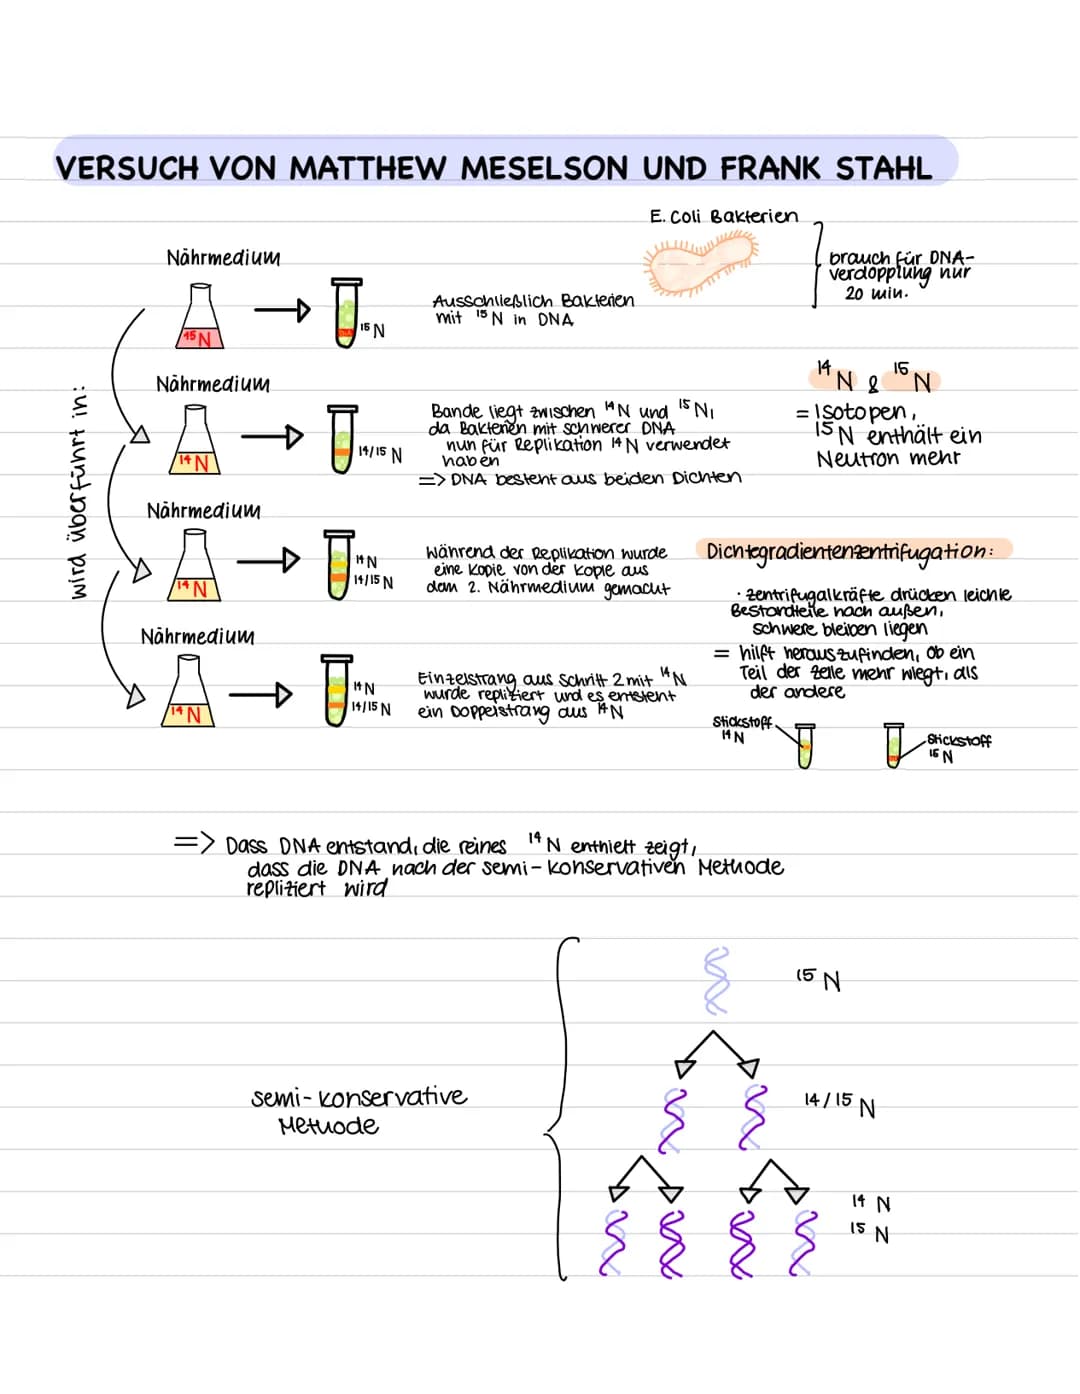 VERSUCH VON MATTHEW MESELSON UND FRANK STAHL
E. Coli Bakterien
brauch für DNA-
verdopplung nur
20 min.
wird überführt in:
Nährmedium
15 N
15 N
Ausschließlich Bakterien
mit 15 N in DNA
Nährmedium
14 N
14/15 N
Bande liegt zwischen 14 N und 15 N,
da Bakterien mit schwerer DNA
nun für Replikation 14 N verwendet
haben
=> DNA besteht aus beiden Dichten
14 N & 15 N
= Isotopen,
15 N enthält ein
Neutron mehr
Nährmedium
14 N
14 N
14/15 N
Während der Replikation wurde
eine Kopie von der Kopie aus
dem 2. Nährmedium gemacht
Dichtegradientenzentrifugation:
· Zentrifugalkräfte drücken leichte
Bestandteile nach außen,
schwere bleiben liegen
= hilft herauszufinden, ob ein
Teil der Zelle mehr wiegt, als
der andere
Stickstoff
14 N
Stickstoff
15 N
Nährmedium
14 N
14 N
14/15 N
Einzelstrang aus Schritt 2 mit 14 N
wurde repliziert und es entsteht
ein Doppelstrang aus 14 N
=> Dass DNA entstand, die reines 14 N enthielt zeigt,
dass die DNA nach der semi-konservativen Methode
repliziert wird
semi-konservative
Methode
15 N
14/15 N
14 N
15 N